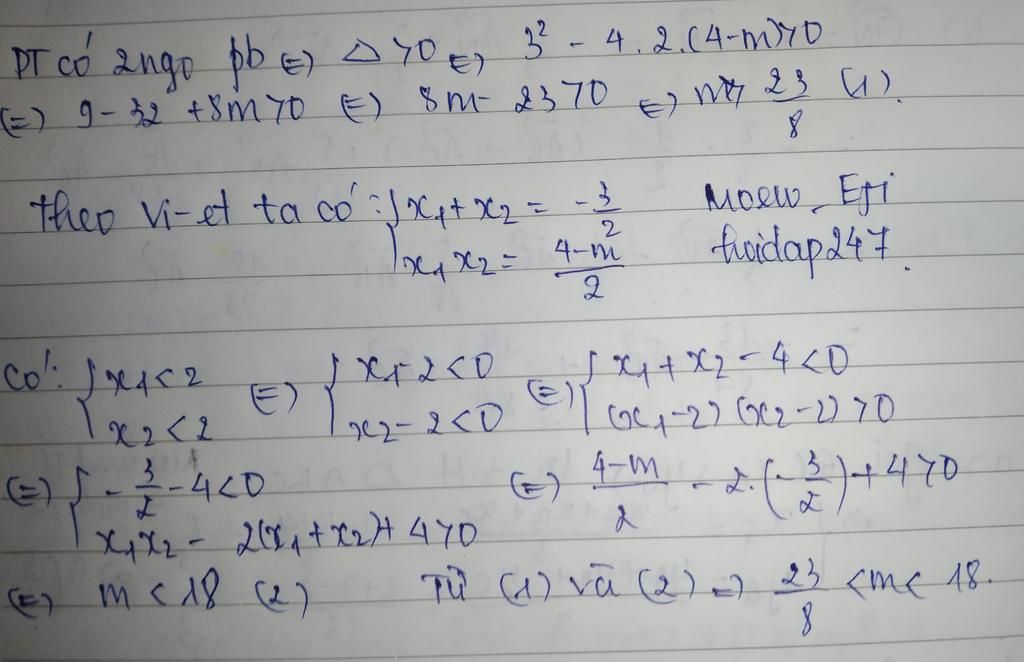 PT có 2 ngo pb (=) Δ>0 (=) 3² - 4.2.(4-m)>0
(=) 9-32 +8m>0 (=) 8m-23>0 (=) m> 23/8 (1).
Theo Vi-et ta có: { x₁+x₂ = -3/2
x₁x₂ = 4-m/2
Moew_Eri
hoidap247.
Có: { x₁<2 (=) { x₁-2<0 (=) { x₁+x₂-4<0
x₂<2 x₂-2<0 (x₁-2)(x₂-2)>0
(=) { -3/2-4<0 (=) 4-m/2 - 2.(-3/2)+4>0
x₁x₂- 2(x₁+x₂)+4>0
(=) m<18 (2) Từ (1) và (2) => 23/8 <m< 18.